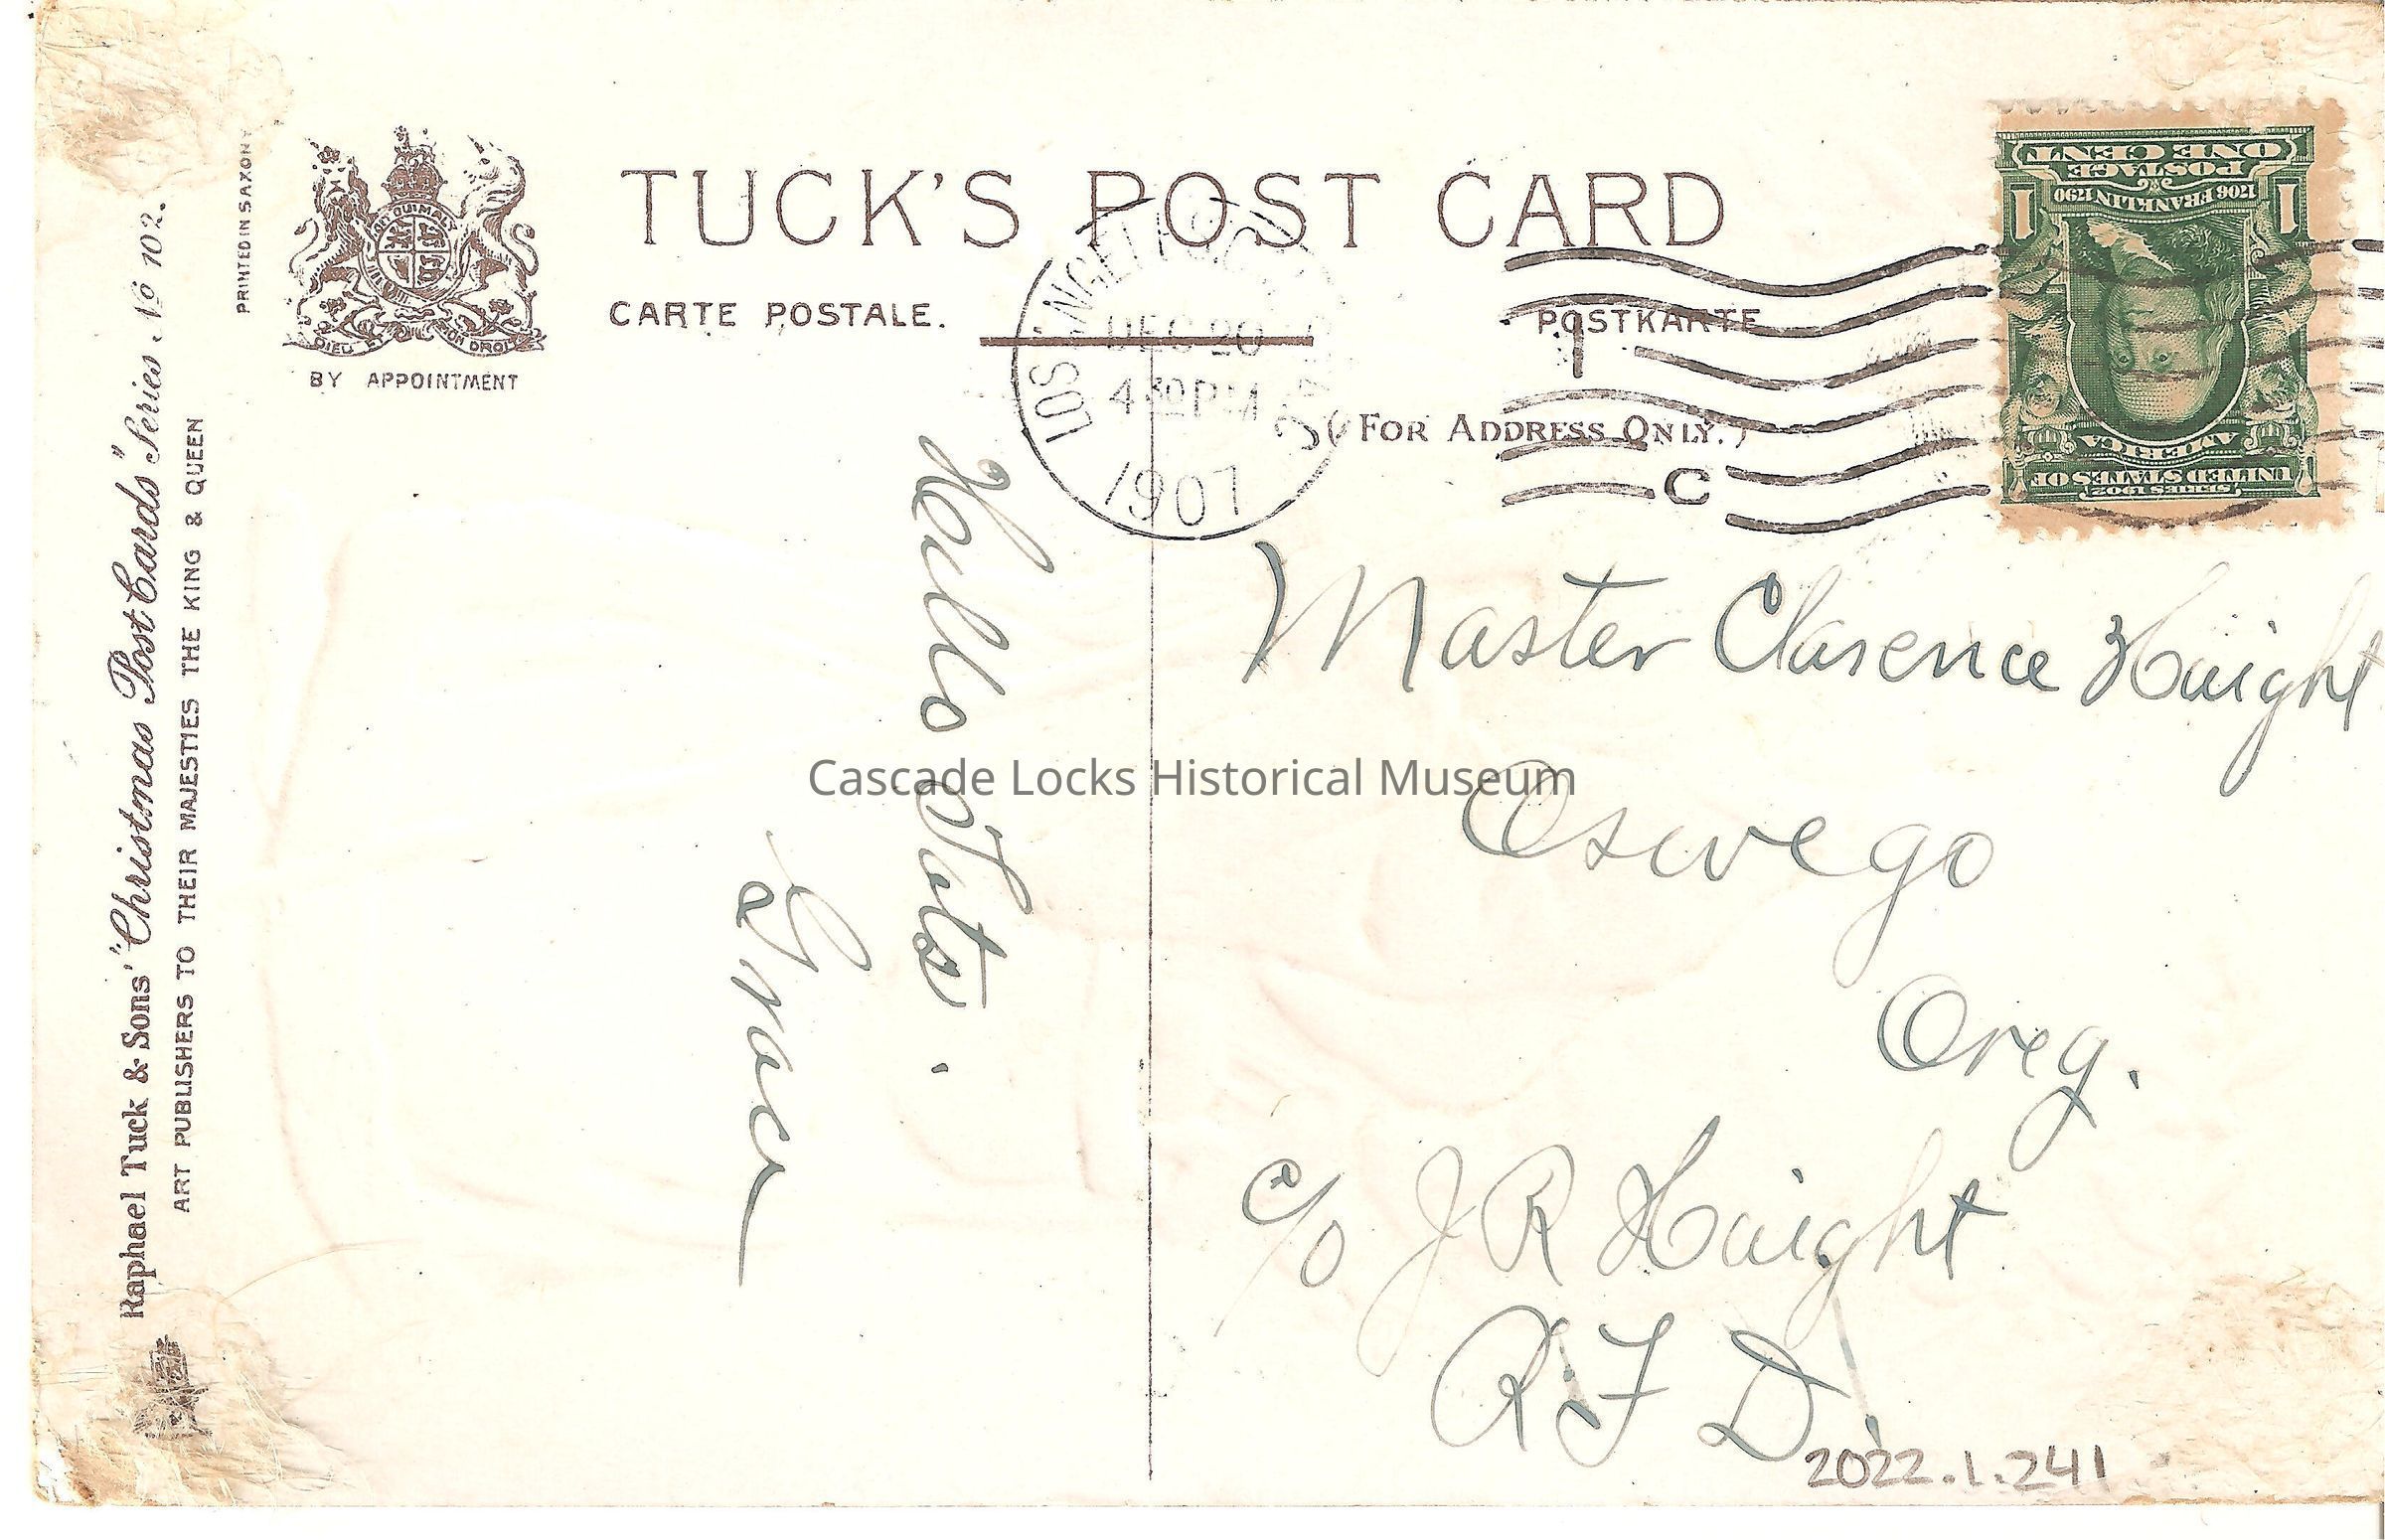 TUCK'S POST CARD
CARTE POSTALE.
POSTKARTE
(FOR ADDRESS ONLY.)
BY APPOINTMENT
DIEU ET MON DROIT
PRINTED IN SAXONY
Raphael Tuck & Sons' "Christmas Post Cards" Series No 102.
ART PUBLISHERS TO THEIR MAJESTIES THE KING & QUEEN
LOS ANGELES,
DEC 20
4 30 PM
1907
C
SERIES 1902
UNITED STATES OF
AMERICA
1706 FRANKLIN 1790
1 1
POSTAGE
ONE CENT
Hello Tuts.
Grace
Master Clarence Haight
Oswego
Oreg.
c/o J R Haight
R F D.
2022.1.241
Cascade Locks Historical Museum